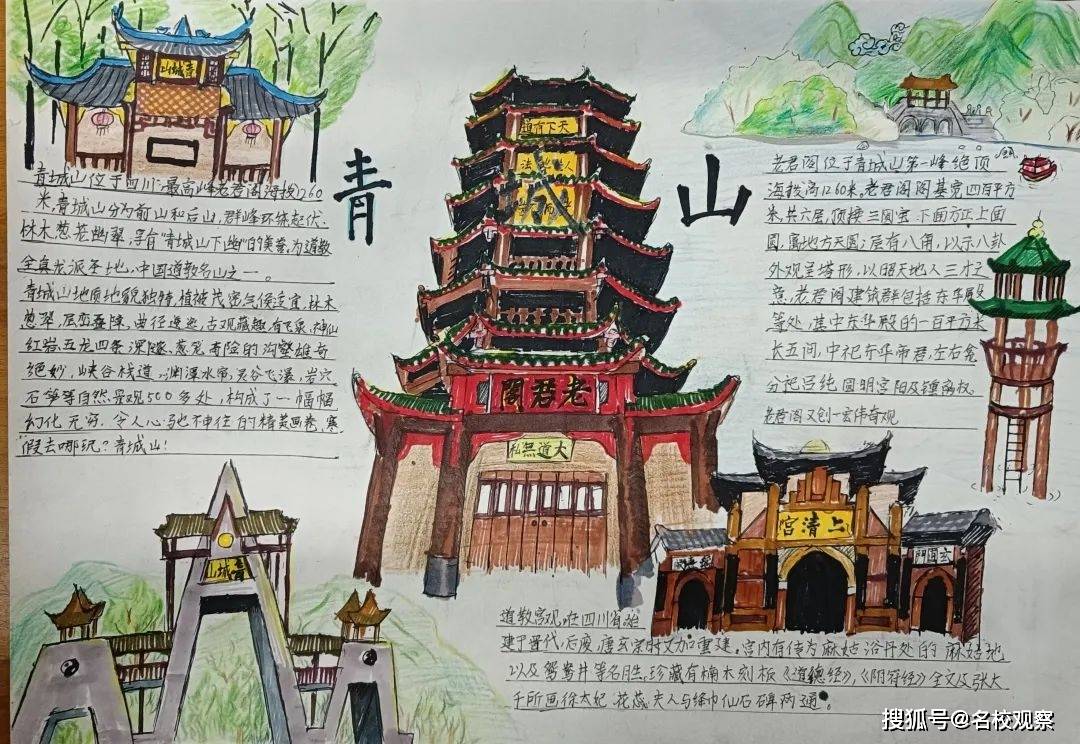 青城山
青城山位于四川,最高峰老君阁海拔1260
米,青城山分为前山和后山,群峰环绕起伏、
林木葱茏幽翠,享有“青城山下幽”的美誉,为道教
全真龙派圣地,中国道教名山之一。
青城山地质地貌独特,植被茂密气侯适宜,林木
葱翠,层峦叠障,曲径逶迤,古观藏趣,有飞泉、神仙
红岩、五龙四条深邃、葱茏奇险的沟壑雄奇
绝妙,峡谷栈道、渊潭水帘,灵谷飞瀑,岩穴
石笋等自然景观500多处,构成了一幅幅
幻化无穷,令人心驰神往的精美画卷,寒
假去哪玩?青城山!
青
城
山
天下有道
老君閣
大道無私
老君阁位于青城山第一峰绝顶
海拔高1260米。老君阁阁基宽四百平方
米,共六层,顶接三圆宝、下面方正上面
圆,寓地方天圆;层有八角,以示八卦
外观呈塔形,以昭天地人三才之
意,老君阁建筑群包括东华殿
等处,其中东华殿的一百平方米
长五间,中祀东华帝君,左右龛
分祀吕纯
老君阁又创一宏伟奇观
青城山
上清宫
玄圃門
道教宫观,在四川省
建于晋代,后废,唐玄宗时又加重建。宫内有传为麻姑浴丹处的麻姑池
以及鸳鸯井等名胜,珍藏有楠木刻板《道德经》,《阴符经》全文及张大
千所画徐太妃、花蕊夫人与绛巾仙石碑两通。
搜狐号@名校观察